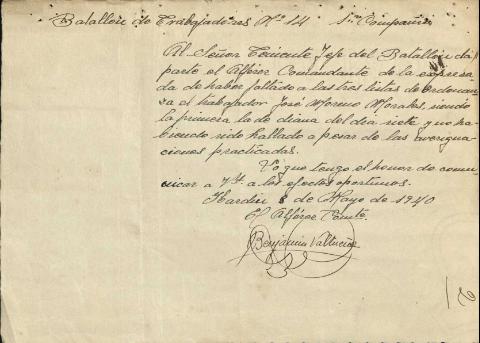 Batallón de Trabajadores Nº 14 Compañia
Al Señor Teniente Jefe del Batallón da
parte el Alférez Comandante de la expresa-
da de haber faltado a las tres listas de Ordenan-
za el trabajador José Moreno Morales, siendo
la primera la de diana del dia siete y no ha-
biendo sido hallado a pesar de las averigua-
ciones practicadas.
Lo que tengo el honor de comu-
nicar a Vd. a los efectos oportunos.
8 de Mayo de 1940
El Alférez Comte.
Benjamin